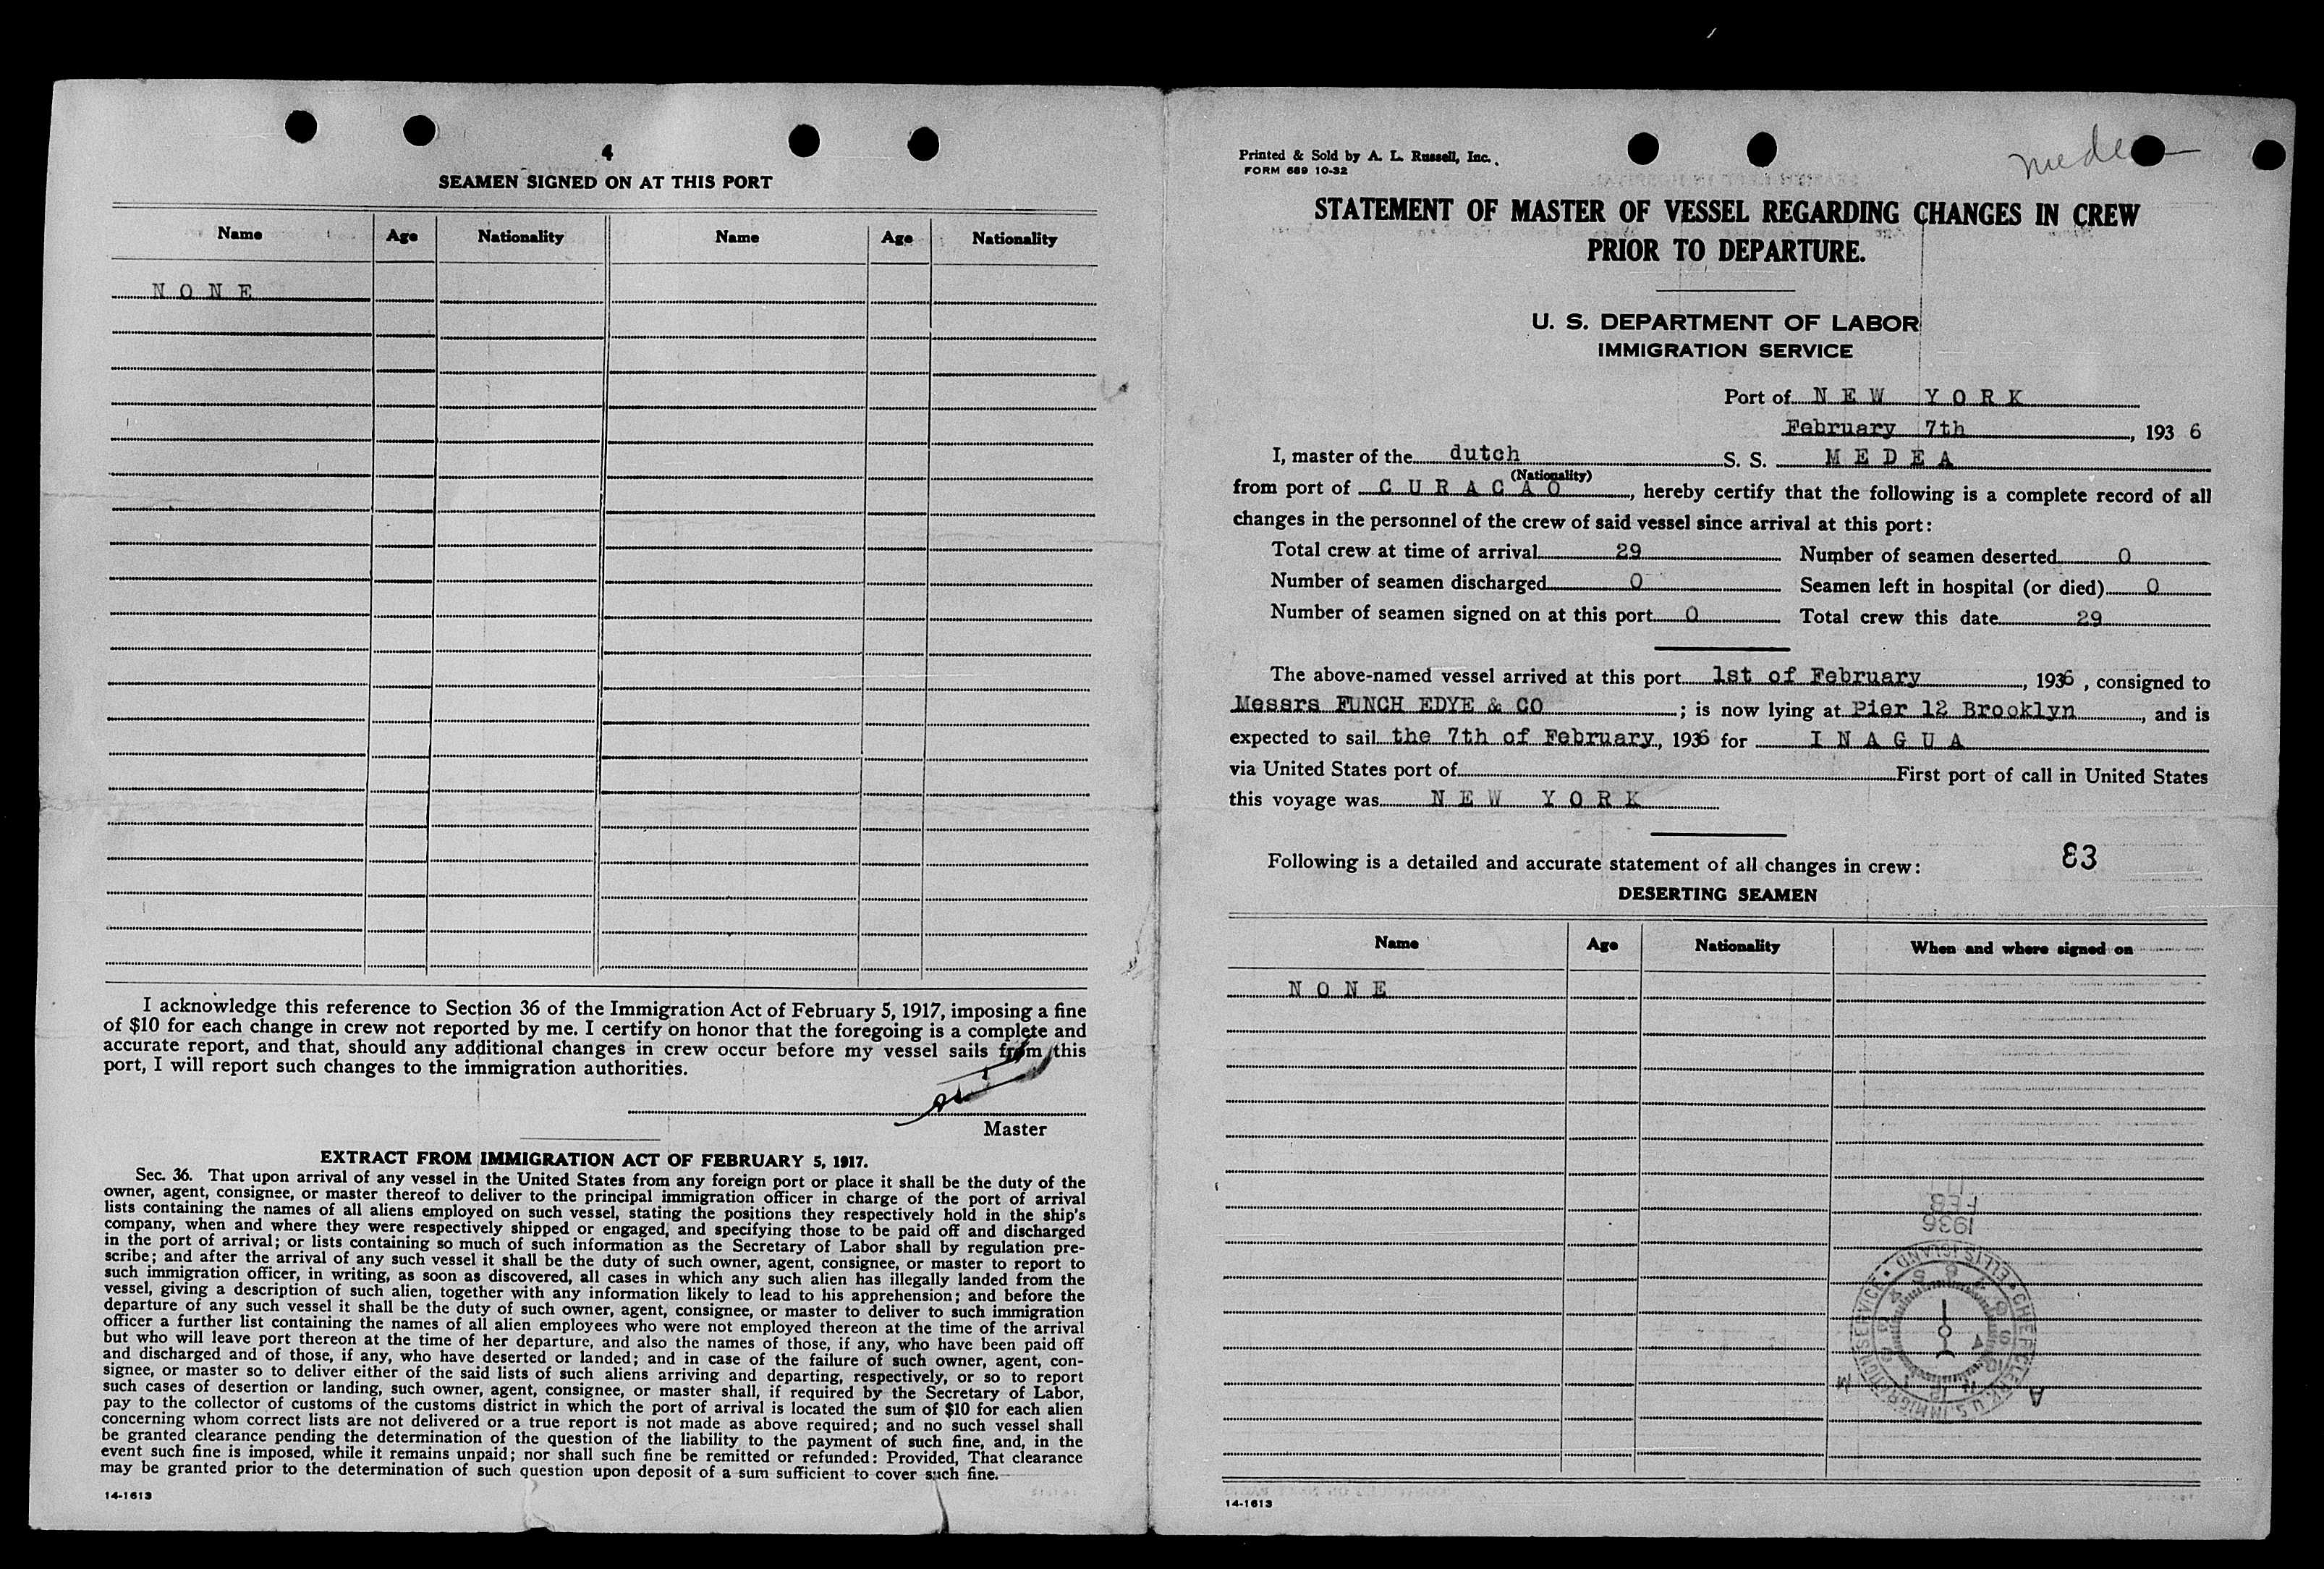 4
SEAMEN SIGNED ON AT THIS PORT
Name Age Nationality Name Age Nationality
N O N E
I acknowledge this reference to Section 36 of the Immigration Act of February 5, 1917, imposing a fine
of $10 for each change in crew not reported by me. I certify on honor that the foregoing is a complete and
accurate report, and that, should any additional changes in crew occur before my vessel sails from this
port, I will report such changes to the immigration authorities.
Master
EXTRACT FROM IMMIGRATION ACT OF FEBRUARY 5, 1917.
Sec. 36. That upon arrival of any vessel in the United States from any foreign port or place it shall be the duty of the
owner, agent, consignee, or master thereof to deliver to the principal immigration officer in charge of the port of arrival
lists containing the names of all aliens employed on such vessel, stating the positions they respectively hold in the ship's
company, when and where they were respectively shipped or engaged, and specifying those to be paid off and discharged
in the port of arrival; or lists containing so much of such information as the Secretary of Labor shall by regulation pre-
scribe; and after the arrival of any such vessel it shall be the duty of such owner, agent, consignee, or master to report to
such immigration officer, in writing, as soon as discovered, all cases in which any such alien has illegally landed from the
vessel, giving a description of such alien, together with any information likely to lead to his apprehension; and before the
departure of any such vessel it shall be the duty of such owner, agent, consignee, or master to deliver to such immigration
officer a further list containing the names of all alien employees who were not employed thereon at the time of the arrival
but who will leave port thereon at the time of her departure, and also the names of those, if any, who have been paid off
and discharged and of those, if any, who have deserted or landed; and in case of the failure of such owner, agent, con-
signee, or master so to deliver either of the said lists of such aliens arriving and departing, respectively, or so to report
such cases of desertion or landing, such owner, agent, consignee, or master shall, if required by the Secretary of Labor,
pay to the collector of customs of the customs district in which the port of arrival is located the sum of $10 for each alien
concerning whom correct lists are not delivered or a true report is not made as above required; and no such vessel shall
be granted clearance pending the determination of the question of the liability to the payment of such fine, and, in the
event such fine is imposed, while it remains unpaid; nor shall such fine be remitted or refunded: Provided, That clearance
may be granted prior to the determination of such question upon deposit of a sum sufficient to cover such fine.
14-1613
Printed & Sold by A. L. Russell, Inc.
FORM 689 10-32
Medea
STATEMENT OF MASTER OF VESSEL REGARDING CHANGES IN CREW
PRIOR TO DEPARTURE.
U. S. DEPARTMENT OF LABOR
IMMIGRATION SERVICE
Port of N E W Y O R K
February 7th, 193 6
I, master of the dutch S. S. M E D E A
(Nationality)
from port of C U R A C A O, hereby certify that the following is a complete record of all
changes in the personnel of the crew of said vessel since arrival at this port:
Total crew at time of arrival 29 Number of seamen deserted 0
Number of seamen discharged 0 Seamen left in hospital (or died) 0
Number of seamen signed on at this port 0 Total crew this date 29
The above-named vessel arrived at this port 1st of February, 1936, consigned to
Messrs FUNCH EDYE & CO; is now lying at Pier 12 Brooklyn, and is
expected to sail the 7th of February, 1936 for I N A G U A
via United States port of First port of call in United States
this voyage was N E W Y O R K
Following is a detailed and accurate statement of all changes in crew: 83
DESERTING SEAMEN
Name Age Nationality When and where signed on
N O N E
FEB
1936
14-1613